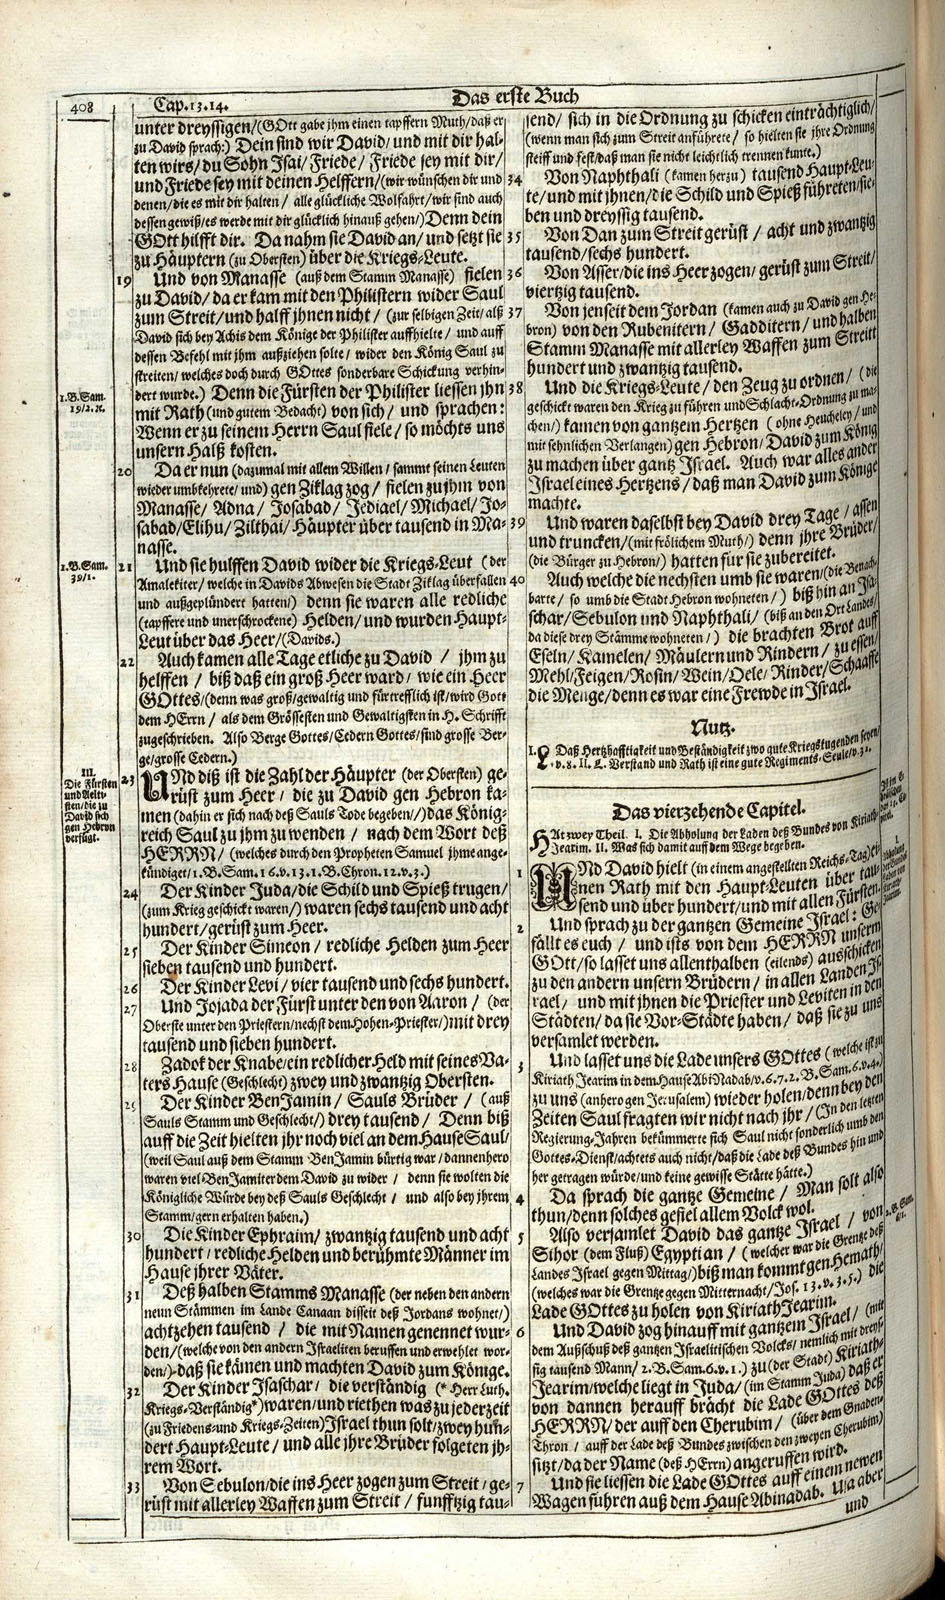 408
Cap. 13. 14.
Das erste Buch
unter dreyssigen/ (GOtt gabe jhm einen tapffern Muth/ daß er
zu David sprach:) Dein sind wir David/ und mit dir hal-
ten wirs/ du Sohn Isai/ Friede/ Friede sey mit dir/
und Friede sey mit deinen Helffern/ (wir wünschen dir und
denen/ die es mit dir halten/ alle glückliche Wolfahrt/ wir sind auch
dessen gewiß/ es werde mit dir glücklich hinauß gehen/) Denn dein
GOtt hilfft dir. Da nahm sie David an/ und setzt sie
zu Häuptern (zu Obersten) über die Kriegs-Leute.
19 Und von Manasse (auß dem Stamm Manasse) fielen
zu David/ da er kam mit den Philistern wider Saul
zum Streit/ und halff jhnen nicht/ (zur selbigen Zeit/ alß
David sich bey Achis dem Könige der Philister auffhielte/ und auff
dessen Befehl mit jhm außziehen solte/ wider den König Saul zu
streiten/ welches doch durch GOttes sonderbare Schickung verhin-
dert wurde.) Denn die Fürsten der Philister liessen jhn
1. B. Sam.
29/2. rc.
mit Rath (und gutem Bedacht) von sich/ und sprachen:
Wenn er zu seinem Herrn Saul fiele/ so möchts uns
unsern Halß kosten.
20 Da er nun (dazumal mit allem Willen/ sammt seinen Leuten
wieder umbkehrete/ und) gen Ziklag zog/ fielen zu jhm von
Manasse/ Adna/ Josabad/ Jediael/ Michael/ Jo-
sabad/ Elihu/ Zilthai/ Häupter über tausend in Ma-
nasse.
1. B. Sam.
30/1.
21 Und sie hulffen David wider die Kriegs-Leut (der
Amalekiter/ welche in Davids Abwesen die Stadt Ziklag überfallen
und außgeplündert hatten/) denn sie waren alle redliche
(tapffere und unerschrockene) Helden/ und wurden Haupt-
Leut über das Heer/ (Davids.)
22 Auch kamen alle Tage etliche zu David/ jhm zu
helffen/ biß daß ein groß Heer ward/ wie ein Heer
GOttes/ (denn was groß/ gewaltig und fürtrefflich ist/ wird Gott
dem HErrn/ als dem Grössesten und Gewaltigsten in H. Schrifft
zugeschrieben. Also Berge Gottes/ Cedern Gottes/ sind grosse Ber-
ge/ grosse Cedern.)
III.
Die Fürsten
und Aelte-
sten/ die zu
David sich
gen Hebron
verfügt.
23 UNd diß ist die Zahl der Häupter (der Obersten) ge-
rüst zum Heer/ die zu David gen Hebron ka-
men (dahin er sich nach deß Sauls Tode begeben/) das König-
reich Saul zu jhm zu wenden/ nach dem Wort deß
HERRN/ (welches durch den Propheten Samuel jhme ange-
kündiget/ 1. B. Sam. 16. v. 13. 1. B. Chron. 12. v. 3.)
24 Der Kinder Juda/ die Schild und Spieß trugen/
(zum Krieg geschickt waren/) waren sechs tausend und acht
hundert/ gerüst zum Heer.
25 Der Kinder Simeon/ redliche Helden zum Heer
sieben tausend und hundert.
26 Der Kinder Levi/ vier tausend und sechs hundert.
27 Und Jojada der Fürst unter den von Aaron/ (der
Oberste unter den Priestern/ nechst dem Hohen-Priester/) mit drey
tausend und sieben hundert.
28 Zadok der Knabe/ ein redlicher Held mit seines Va-
ters Hause (Geschlecht) zwey und zwantzig Obersten.
29 Der Kinder BenJamin/ Sauls Brüder/ (auß
Sauls Stamm und Geschlecht/) drey tausend/ Denn biß
auff die Zeit hielten jhr noch viel an dem Hause Saul/
(weil Saul auß dem Stamm BenJamin bürtig war/ dannenhero
waren viel BenJamiter dem David zu wider/ denn sie wolten die
Königliche Würde bey deß Sauls Geschlecht/ und also bey jhrem
Stamm/ gern erhalten haben.)
30 Die Kinder Ephraim/ zwantzig tausend und acht
hundert/ redliche Helden und berühmte Männer im
Hause jhrer Väter.
31 Deß halben Stamms Manasse (der neben den andern
neun Stämmen im Lande Canaan disseit deß Jordans wohnet/)
achtzehen tausend/ die mit Namen genennet wur-
den/ (welche von den andern Israeliten beruffen und erwehlet wor-
den/) daß sie kämen und machten David zum Könige.
32 Der Kinder Isaschar/ die verständig (* Herr Luth.
Kriegs-Verständig*) waren/ und riethen was zu jederzeit
(zu Friedens- und Kriegs-Zeiten) Israel thun solt/ zwey hun-
dert Haupt-Leute/ und alle jhre Brüder folgeten jh-
rem Wort.
33 Von Sebulon/ die ins Heer zogen zum Streit/ ge-
rüst mit allerley Waffen zum Streit/ funfftzig tau-
send/ sich in die Ordnung zu schicken einträchtiglich/
(wenn man sich zum Streit anführete/ so hielten sie jhre Ordnung
steiff und fest/ daß man sie nicht leichtlich trennen kunte.)
34 Von Naphthali (kamen herzu) tausend Haupt-Leu-
te/ und mit jhnen/ die Schild und Spieß führeten/ sie-
ben und dreyssig tausend.
35 Von Dan zum Streit gerüst/ acht und zwantzig
tausend/ sechs hundert.
36 Von Asser/ die ins Heer zogen/ gerüst zum Streit/
viertzig tausend.
37 Von jenseit dem Jordan (kamen auch zu David gen He-
bron) von den Rubenitern/ Gadditern/ und halben
Stamm Manasse mit allerley Waffen zum Streitt
hundert und zwantzig tausend.
38 Und die Kriegs-Leute/ den Zeug zu ordnen/ (die
geschickt waren den Krieg zu führen und Schlacht-Ordnung zu ma-
chen/) kamen von gantzem Hertzen (ohne Heucheley/ und
mit sehnlichen Verlangen) gen Hebron/ David zum König
zu machen über gantz Israel. Auch war alles ander
Israel eines Hertzens/ daß man David zum Könige
machte.
39 Und waren daselbst bey David drey Tage/ assen
und truncken/ (mit frölichem Muth/) denn jhre Brüder/
(die Bürger zu Hebron/) hatten für sie zubereitet.
40 Auch welche die nechsten umb sie waren/ (die Benach-
barte/ so umb die Stadt Hebron wohneten/) biß hin an Isa-
schar/ Sebulon und Naphthali/ (biß an den Ort Landes/
da diese drey Stämme wohneten/) die brachten Brot auff
Eseln/ Kamelen/ Mäulern und Rindern/ zu essen/
Mehl/ Feigen/ Rosin/ Wein/ Oele/ Rinder/ Schaaffe
die Menge/ denn es war eine Frewde in Israel.
Nutz.
I. Daß Hertzhafftigkeit und Beständigkeit zwo gute Kriegstugenden seyen/
v. 8. II. L. Verstand und Rath ist eine gute Regiments-Seule/ v. 32.
Das vierzehende Capitel.
HAt zwey Theil. I. Die Abholung der Laden deß Bundes von Kiriath-
Jearim. II. Was sich damit auff dem Wege begeben.
1 UNd David hielt (in einem angestellten Reichs-Tag) ei-
nen Rath mit den Haupt-Leuten über tau-
send und über hundert/ und mit allen Fürsten.
2 Und sprach zu der gantzen Gemeine Israel: Ge-
fällt es euch/ und ists von dem HERRN unserm
GOtt/ so lasset uns allenthalben (eilends) ausschicken
zu den andern unsern Brüdern/ in allen Landen Is-
rael/ und mit jhnen die Priester und Leviten in den
Städten/ da sie Vor-Städte haben/ daß sie zu uns
versamlet werden.
3 Und lasset uns die Lade unsers GOttes (welche ist zu
Kiriath Jearim in dem Hause AbiNadab/ v. 6. 7. 2. B. Sam. 6. v. 4.)
zu uns (anhero gen Jerusalem) wieder holen/ denn bey den
Zeiten Saul fragten wir nicht nach jhr/ (In den letzten
Regierung-Jahren bekümmerte sich Saul nicht sonderlich umb den
Gottes-Dienst/ achtets auch nicht/ daß die Lade deß Bundes hin und
her getragen würde/ und keine gewisse Stätte hätte.)
4 Da sprach die gantze Gemeine/ Man solt also
thun/ denn solches gefiel allem Volck wol.
2. B. Sam.
6/1.
5 Also versamlet David das gantze Israel/ von
Sihor (dem Fluß) Egyptian/ (welcher war die Grentze deß
Landes Israel gegen Mittag/) biß man kommt gen Hemath/
(welches war die Grentze gegen Mitternacht/ Jos. 13. v. 3. 5.) die
Lade GOttes zu holen von Kiriath Jearim.
6 Und David zog hinauff mit gantzem Israel/ (mit
dem Außschuß deß gantzen Israelitischen Volcks/ nemlich mit dreys-
sig tausend Mann/ 2. B. Sam. 6. v. 1.) zu (der Stadt) Kiriath-
Jearim/ welche liegt in Juda/ (im Stamm Juda) daß er
von dannen herauff brächt die Lade GOttes deß
HERRN/ der auff den Cherubim/ (über dem Gnaden-
Thron/ auff der Lade deß Bundes zwischen den zweyen Cherubim)
sitzt/ da der Name (deß HErrn) angeruffen wird.
7 Und sie liessen die Lade GOttes auff einem newen
Wagen führen auß dem Hause Abinadab. Usa aber
und